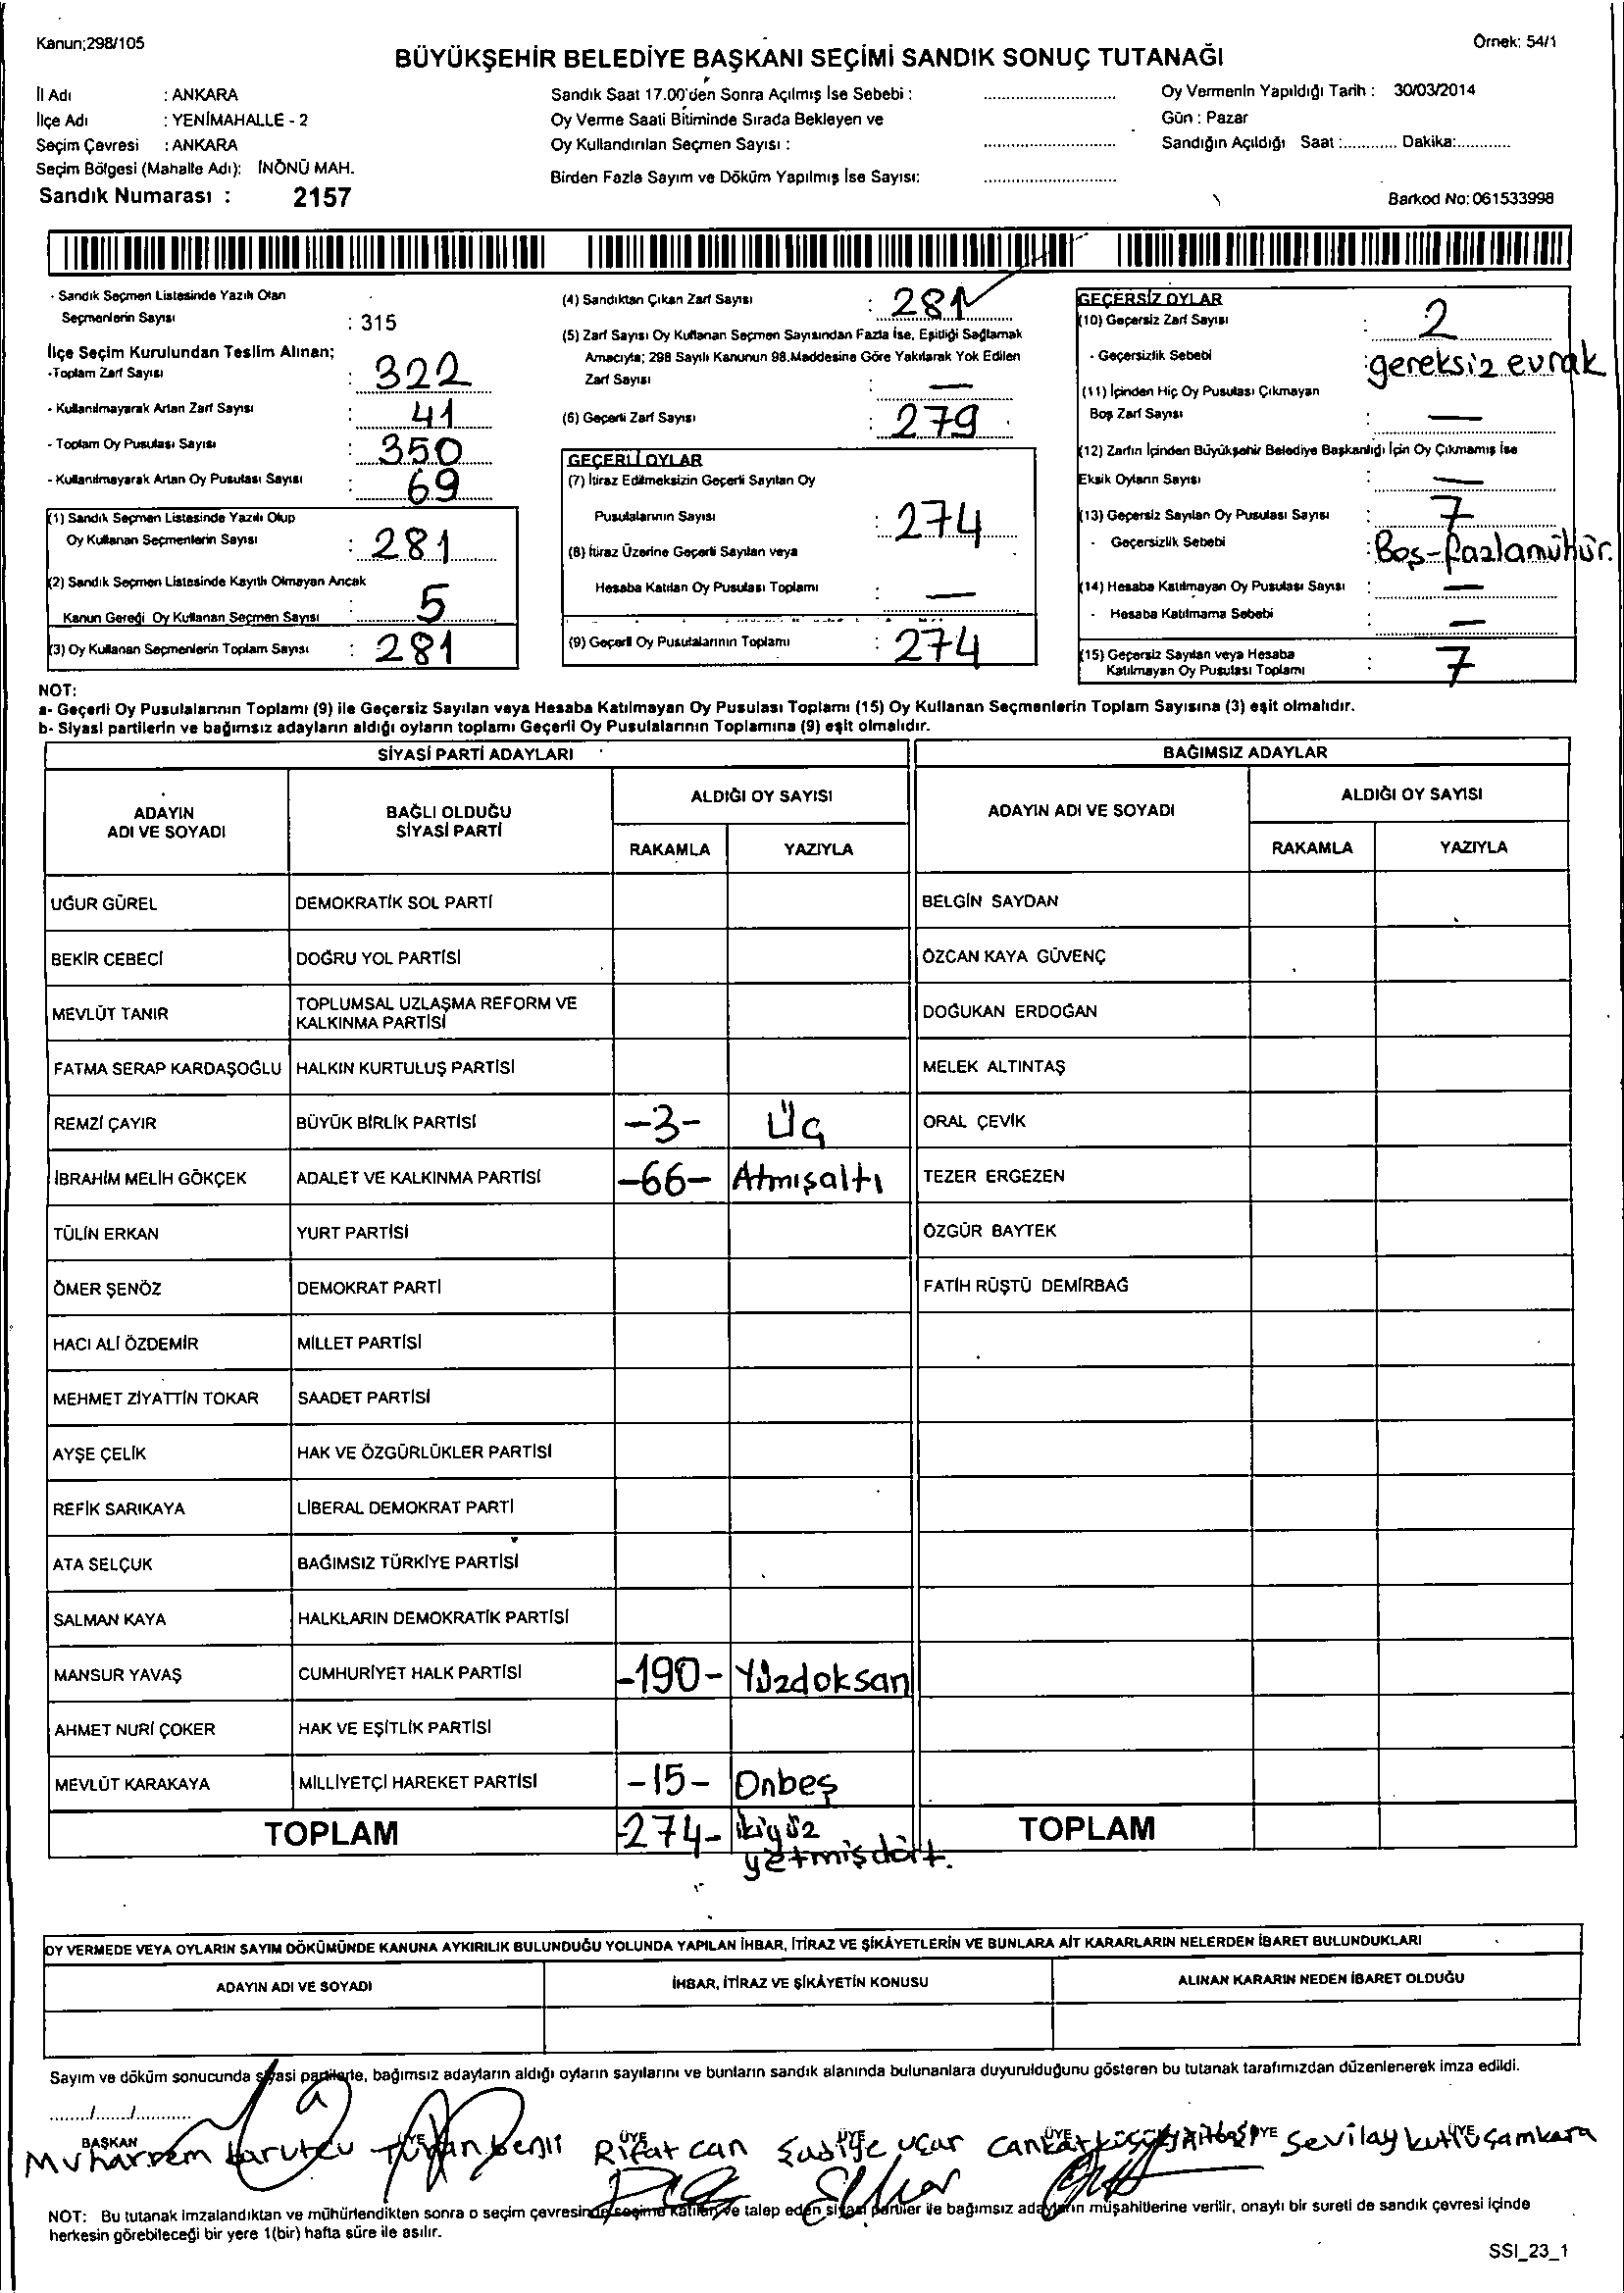 Kanun;298/105
Örnek: 54/1
BÜYÜKŞEHİR BELEDİYE BAŞKANI SEÇİMİ SANDIK SONUÇ TUTANAĞI
İl Adı : ANKARA
İlçe Adı : YENİMAHALLE - 2
Seçim Çevresi : ANKARA
Seçim Bölgesi (Mahalle Adı): İNÖNÜ MAH.
Sandık Numarası : 2157
Sandık Saat 17.00'den Sonra Açılmış İse Sebebi : ............................
Oy Verme Saati Bitiminde Sırada Bekleyen ve
Oy Kullandırılan Seçmen Sayısı : ............................
Birden Fazla Sayım ve Döküm Yapılmış İse Sayısı: ............................
Oy Vermenin Yapıldığı Tarih : 30/03/2014
Gün : Pazar
Sandığın Açıldığı Saat :............ Dakika:............
Barkod No: 061533998
- Sandık Seçmen Listesinde Yazılı Olan
Seçmenlerin Sayısı : 315
İlçe Seçim Kurulundan Teslim Alınan;
-Toplam Zarf Sayısı : 322
- Kullanılmayarak Artan Zarf Sayısı : 41
- Toplam Oy Pusulası Sayısı : 350
- Kullanılmayarak Artan Oy Pusulası Sayısı : 69
(1) Sandık Seçmen Listesinde Yazılı Olup
Oy Kullanan Seçmenlerin Sayısı : 281
(2) Sandık Seçmen Listesinde Kayıtlı Olmayan Ancak
Kanun Gereği Oy Kullanan Seçmen Sayısı : 5
(3) Oy Kullanan Seçmenlerin Toplam Sayısı : 281
(4) Sandıktan Çıkan Zarf Sayısı : 281
(5) Zarf Sayısı Oy Kullanan Seçmen Sayısından Fazla İse, Eşitliği Sağlamak
Amacıyla; 298 Sayılı Kanunun 98.Maddesine Göre Yakılarak Yok Edilen
Zarf Sayısı : —
(6) Geçerli Zarf Sayısı : 279
GEÇERLİ OYLAR
(7) İtiraz Edilmeksizin Geçerli Sayılan Oy
Pusulalarının Sayısı : 274
(8) İtiraz Üzerine Geçerli Sayılan veya
Hesaba Katılan Oy Pusulası Toplamı : —
(9) Geçerli Oy Pusulalarının Toplamı : 274
GEÇERSİZ OYLAR
(10) Geçersiz Zarf Sayısı : 2
- Geçersizlik Sebebi : gereksiz evrak
(11) İçinden Hiç Oy Pusulası Çıkmayan
Boş Zarf Sayısı : —
(12) Zarfın İçinden Büyükşehir Belediye Başkanlığı İçin Oy Çıkmamış İse
Eksik Oyların Sayısı : —
(13) Geçersiz Sayılan Oy Pusulası Sayısı : 7
- Geçersizlik Sebebi : Boş-fazlamühür.
(14) Hesaba Katılmayan Oy Pusulası Sayısı : —
- Hesaba Katılmama Sebebi : —
(15) Geçersiz Sayılan veya Hesaba
Katılmayan Oy Pusulası Toplamı : 7
NOT:
a- Geçerli Oy Pusulalarının Toplamı (9) ile Geçersiz Sayılan veya Hesaba Katılmayan Oy Pusulası Toplamı (15) Oy Kullanan Seçmenlerin Toplam Sayısına (3) eşit olmalıdır.
b- Siyasi partilerin ve bağımsız adayların aldığı oyların toplamı Geçerli Oy Pusulalarının Toplamına (9) eşit olmalıdır.
SİYASİ PARTİ ADAYLARI BAĞIMSIZ ADAYLAR
ADAYIN
ADI VE SOYADI
BAĞLI OLDUĞU
SİYASİ PARTİ
ALDIĞI OY SAYISI
RAKAMLA YAZIYLA
ADAYIN ADI VE SOYADI
ALDIĞI OY SAYISI
RAKAMLA YAZIYLA
UĞUR GÜREL DEMOKRATİK SOL PARTİ BELGİN SAYDAN
BEKİR CEBECİ DOĞRU YOL PARTİSİ ÖZCAN KAYA GÜVENÇ
MEVLÜT TANIR TOPLUMSAL UZLAŞMA REFORM VE
KALKINMA PARTİSİ DOĞUKAN ERDOĞAN
FATMA SERAP KARDAŞOĞLU HALKIN KURTULUŞ PARTİSİ MELEK ALTINTAŞ
REMZİ ÇAYIR BÜYÜK BİRLİK PARTİSİ -3- Üç ORAL ÇEVİK
İBRAHİM MELİH GÖKÇEK ADALET VE KALKINMA PARTİSİ -66- Atmışaltı TEZER ERGEZEN
TÜLİN ERKAN YURT PARTİSİ ÖZGÜR BAYTEK
ÖMER ŞENÖZ DEMOKRAT PARTİ FATİH RÜŞTÜ DEMİRBAĞ
HACI ALİ ÖZDEMİR MİLLET PARTİSİ
MEHMET ZİYATTİN TOKAR SAADET PARTİSİ
AYŞE ÇELİK HAK VE ÖZGÜRLÜKLER PARTİSİ
REFİK SARIKAYA LİBERAL DEMOKRAT PARTİ
ATA SELÇUK BAĞIMSIZ TÜRKİYE PARTİSİ
SALMAN KAYA HALKLARIN DEMOKRATİK PARTİSİ
MANSUR YAVAŞ CUMHURİYET HALK PARTİSİ -190- Yüzdoksan
AHMET NURİ ÇOKER HAK VE EŞİTLİK PARTİSİ
MEVLÜT KARAKAYA MİLLİYETÇİ HAREKET PARTİSİ -15- Onbeş
TOPLAM -274- ikiyüz
yetmişdört. TOPLAM
OY VERMEDE VEYA OYLARIN SAYIM DÖKÜMÜNDE KANUNA AYKIRILIK BULUNDUĞU YOLUNDA YAPILAN İHBAR, İTİRAZ VE ŞİKÂYETLERİN VE BUNLARA AİT KARARLARIN NELERDEN İBARET BULUNDUKLARI
ADAYIN ADI VE SOYADI İHBAR, İTİRAZ VE ŞİKÂYETİN KONUSU ALINAN KARARIN NEDEN İBARET OLDUĞU
Sayım ve döküm sonucunda siyasi partilerle, bağımsız adayların aldığı oyların sayılarını ve bunların sandık alanında bulunanlara duyurulduğunu gösteren bu tutanak tarafımızdan düzenlenerek imza edildi.
......../......../............
BAŞKAN ÜYE ÜYE ÜYE ÜYE ÜYE ÜYE
Muharrem Rifat can Sadiye uçar Sevilay
NOT: Bu tutanak imzalandıktan ve mühürlendikten sonra o seçim çevresinde seçime katılan ve talep eden siyasi partiler ile bağımsız adayların müşahitlerine verilir, onaylı bir sureti de sandık çevresi içinde
herkesin görebileceği bir yere 1(bir) hafta süre ile asılır.
SSI_23_1